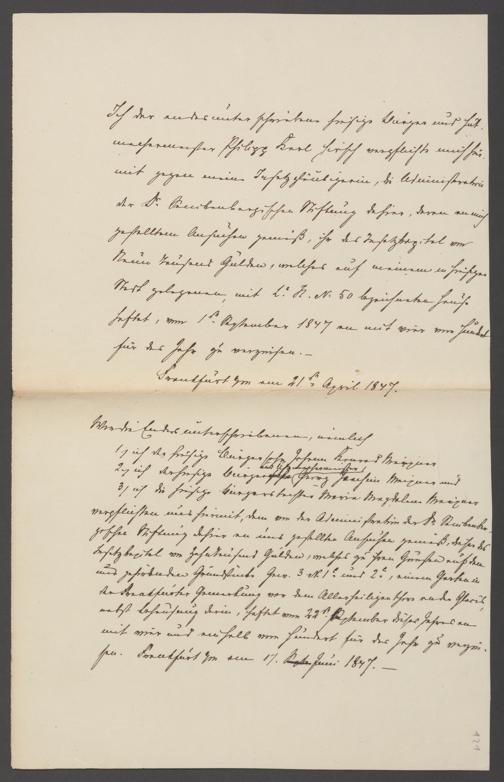 Ich der endesunterschriebene hiesige Bürger und Hut-
machermeister Philipp Karl Hirsch verpflichte mich hier-
mit gegen meine Insatzgläubigerin, die Administration
der Dr. Senckenbergischen Stiftung dahier, deren an mich
gestelltem Ansuchen gemäß, ihr das Insatzkapital von
Neun Tausend Gulden, welches auf meinem in hiesiger
Stadt gelegenen, mit L. N. 50 bezeichneten Hause
haftet, vom 1n September 1847 an mit vier vom Hundert
für das Jahr zu verzinsen. —
Frankfurt a/m am 21n April 1847.
Wir die Endesunterschriebenen, nämlich
1, ich der hiesige Bürgerssohn Johann Konrad Meixner
2, ich der hiesige Georg Joachim Meixner und
3, ich die hiesige Bürgerstochter Maria Magdalena Meixner
verpflichten uns hiermit, dem von der Administration der Dr Senckenber-
gischen Stiftung dahier an uns gestellten Ansuchen gemäß, daß das
Insatzkapital von Gulden, welches zu Ihren Gunsten auf dem
uns gehörenden Grundstücke Gew. 3 N. 1 und 2, einem Garten in
der Frankfurter Gemarkung vor dem Allerheiligenthore an der
nebst Behausung darin, haftet vom 22n September dieses Jahres an
mit vier und einhalb vom Hundert für das Jahr zu verzin-
sen. Frankfurt a/m am 17. Juni 1847. —
424